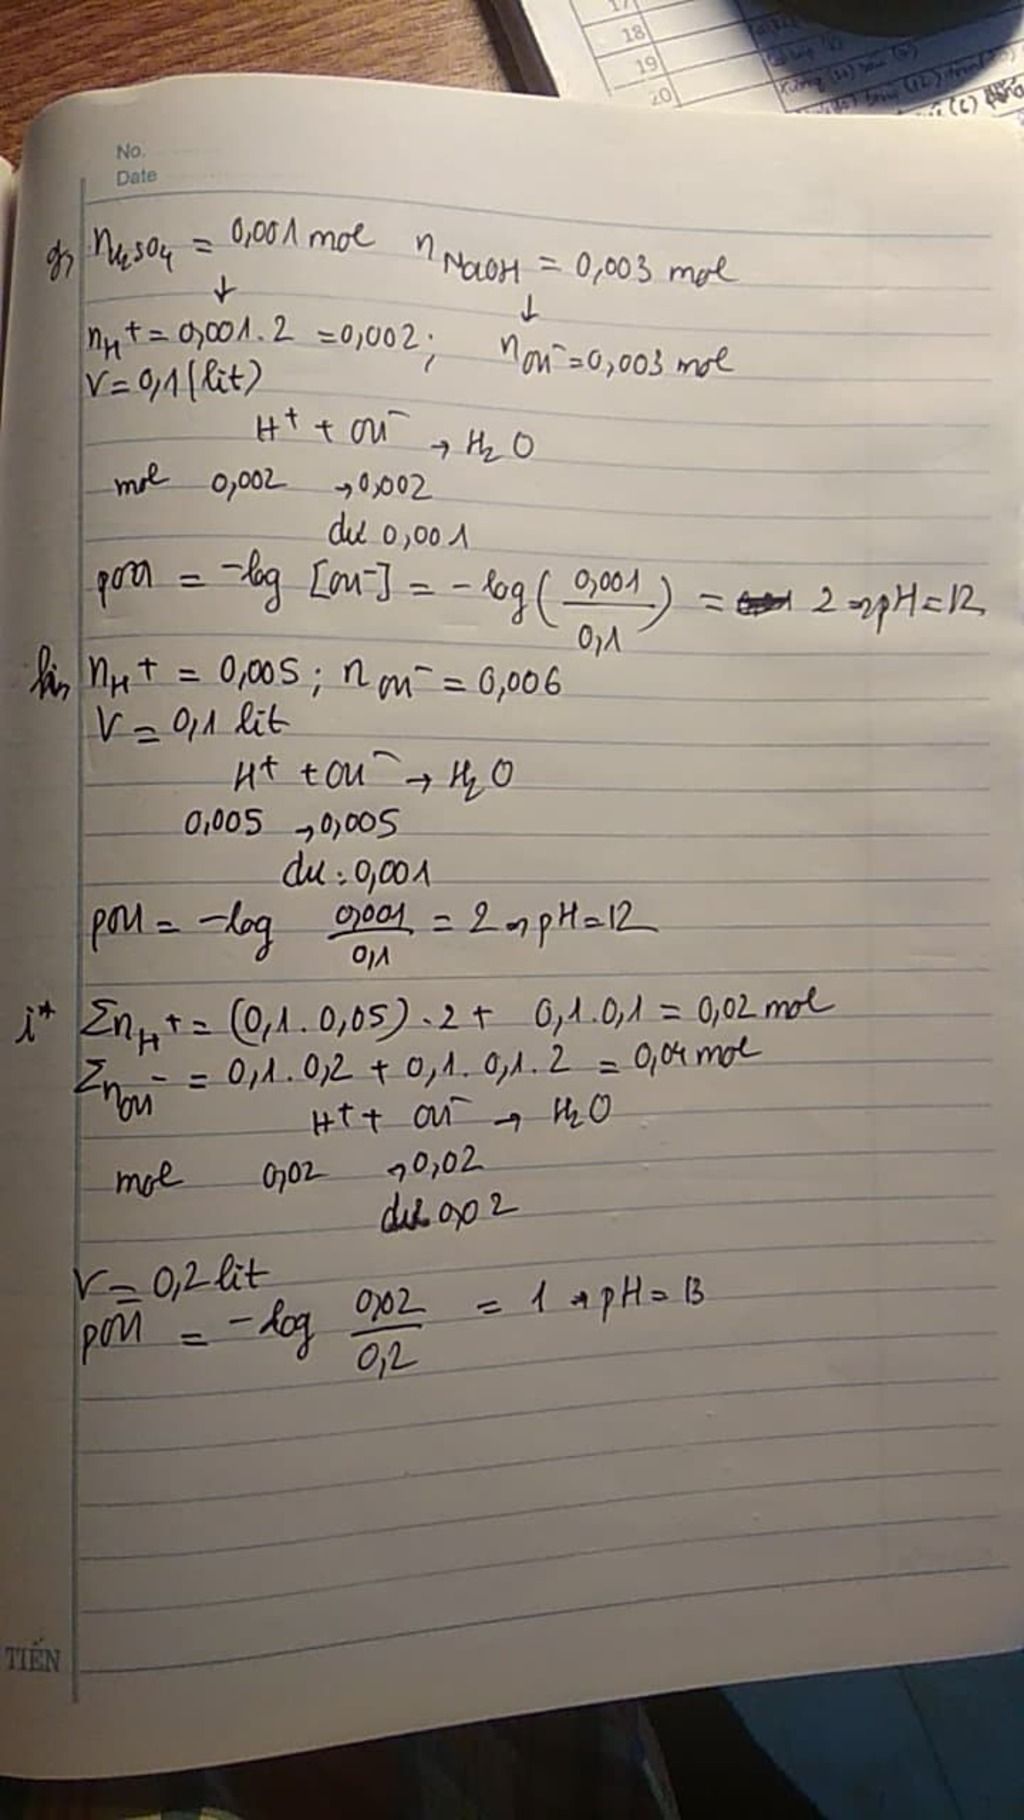 17
18
19
20
No.
Date
g, nH₂SO₄ = 0,001 mol nNaOH = 0,003 mol
↓ ↓
nH⁺ = 0,001.2 = 0,002; nOH⁻ = 0,003 mol
V = 0,1 (lit)
H⁺ + OH⁻ → H₂O
mol 0,002 → 0,002
dư 0,001
pOH = -log [OH⁻] = -log(0,001/0,1) = 2 → pH = 12
h, nH⁺ = 0,005; nOH⁻ = 0,006
V = 0,1 lit
H⁺ + OH⁻ → H₂O
0,005 → 0,005
dư: 0,001
pOH = -log 0,001/0,1 = 2 → pH = 12
i* ΣnH⁺ = (0,1.0,05).2 + 0,1.0,1 = 0,02 mol
ΣnOH⁻ = 0,1.0,2 + 0,1.0,1.2 = 0,04 mol
H⁺ + OH⁻ → H₂O
mol 0,02 → 0,02
dư 0,02
V = 0,2 lit
pOH = -log 0,02/0,2 = 1 → pH = 13
TIẾN